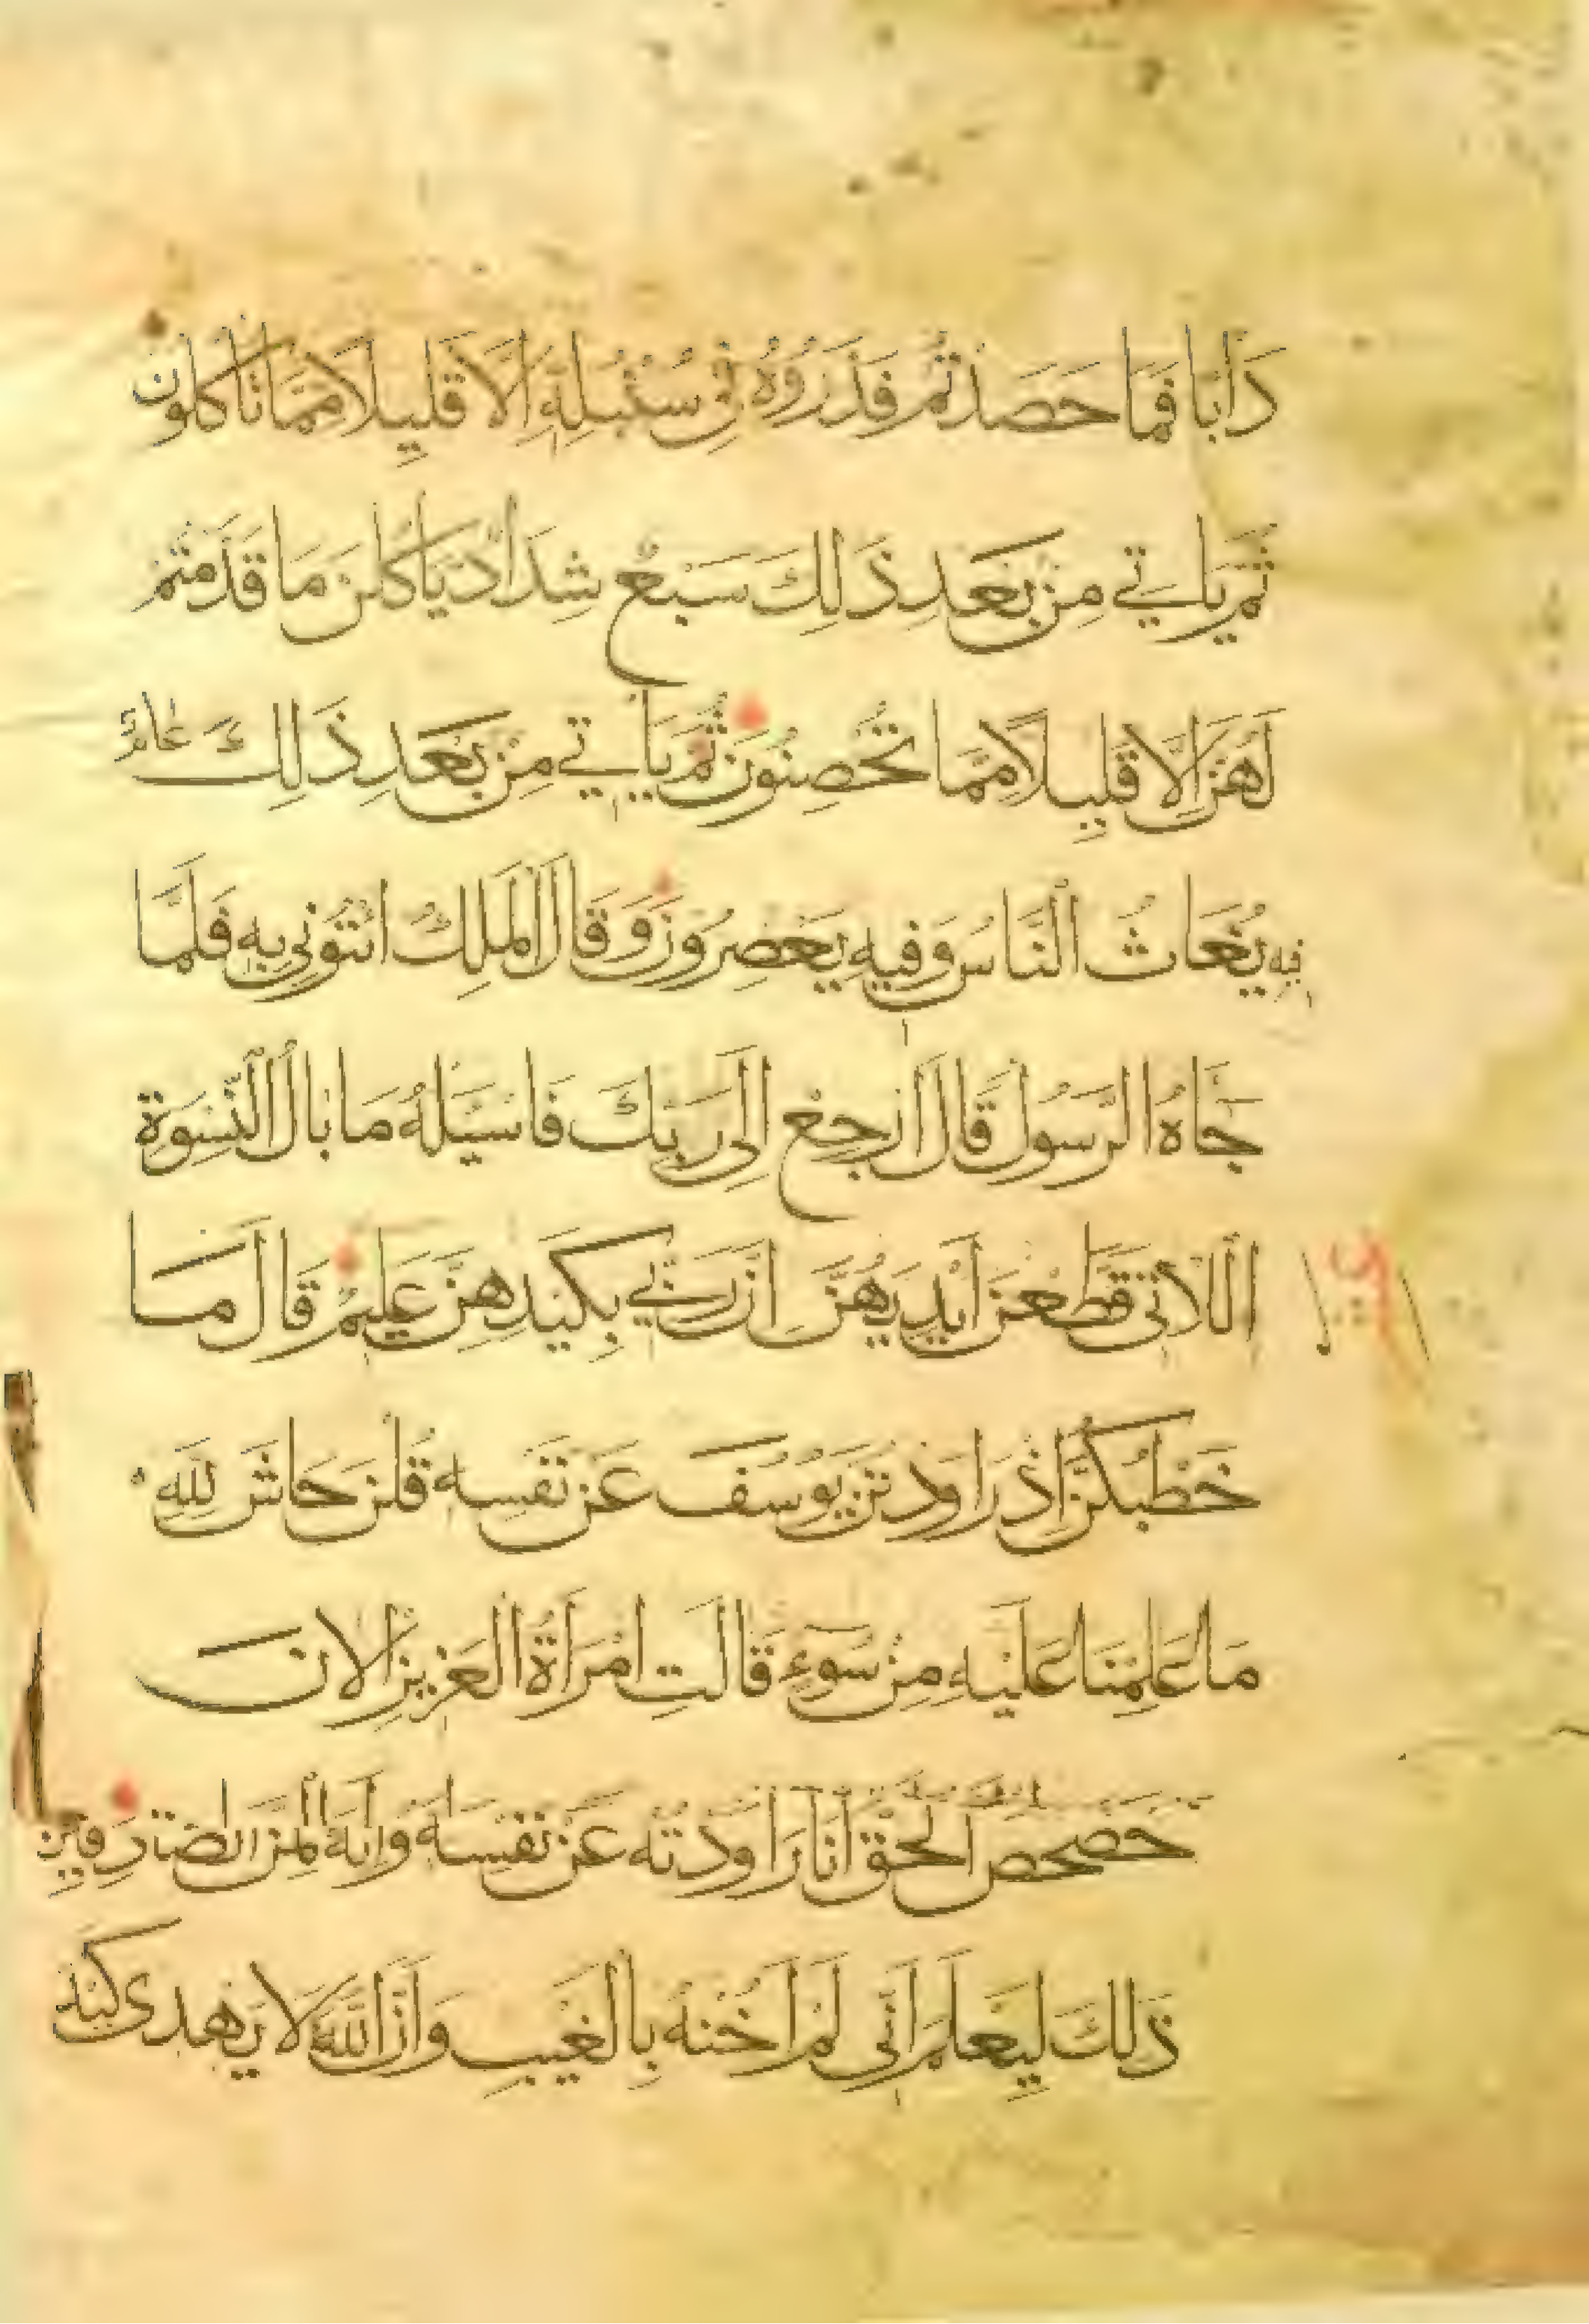 دَأبًا فَمَا حَصَدْتُم فَذَرُوهُ فِي سُنْبُلِهِ إِلَّا قَلِيلًا مِمَّا تَأكُلُونَ
ثُمَّ يَأتِي مِنْ بَعْدِ ذَلِكَ سَبْعٌ شِدَادٌ يَأكُلْنَ مَا قَدَّمْتُمْ
لَهُنَّ إِلَّا قَلِيلًا مِمَّا تُحْصِنُونَ ثُمَّ يَأتِي مِنْ بَعْدِ ذَلِكَ عَامٌ
فِيهِ يُغَاثُ النَّاسُ وَفِيهِ يَعْصِرُونَ وَقَالَ الْمَلِكُ ائْتُونِي بِهِ فَلَمَّا
جَاهُ الرَّسُولُ قَالَ ارْجِعْ إِلَى رَبِّكَ فَاسْئَلْهُ مَا بَالُ النِّسْوَةِ
اللَّاتِي قَطَّعْنَ أَيْدِيَهُنَّ إِنَّ رَبِّي بِكَيْدِهِنَّ عَلِيمٌ قَالَ مَا
خَطْبُكُنَّ إِذْ رَاوَدْتُنَّ يُوسُفَ عَنْ نَفْسِهِ قُلْنَ حَاشَ لِلَّهِ
مَا عَلِمْنَا عَلَيْهِ مِنْ سُوءٍ قَالَتِ امْرَأَةُ الْعَزِيزِ الْآنَ
حَصْحَصَ الْحَقُّ أَنَا رَاوَدْتُهُ عَنْ نَفْسِهِ وَإِنَّهُ لَمِنَ الصَّادِقِينَ
ذَلِكَ لِيَعْلَمَ أَنِّي لَمْ أَخُنْهُ بِالْغَيْبِ وَأَنَّ اللَّهَ لَا يَهْدِي كَيْدَ